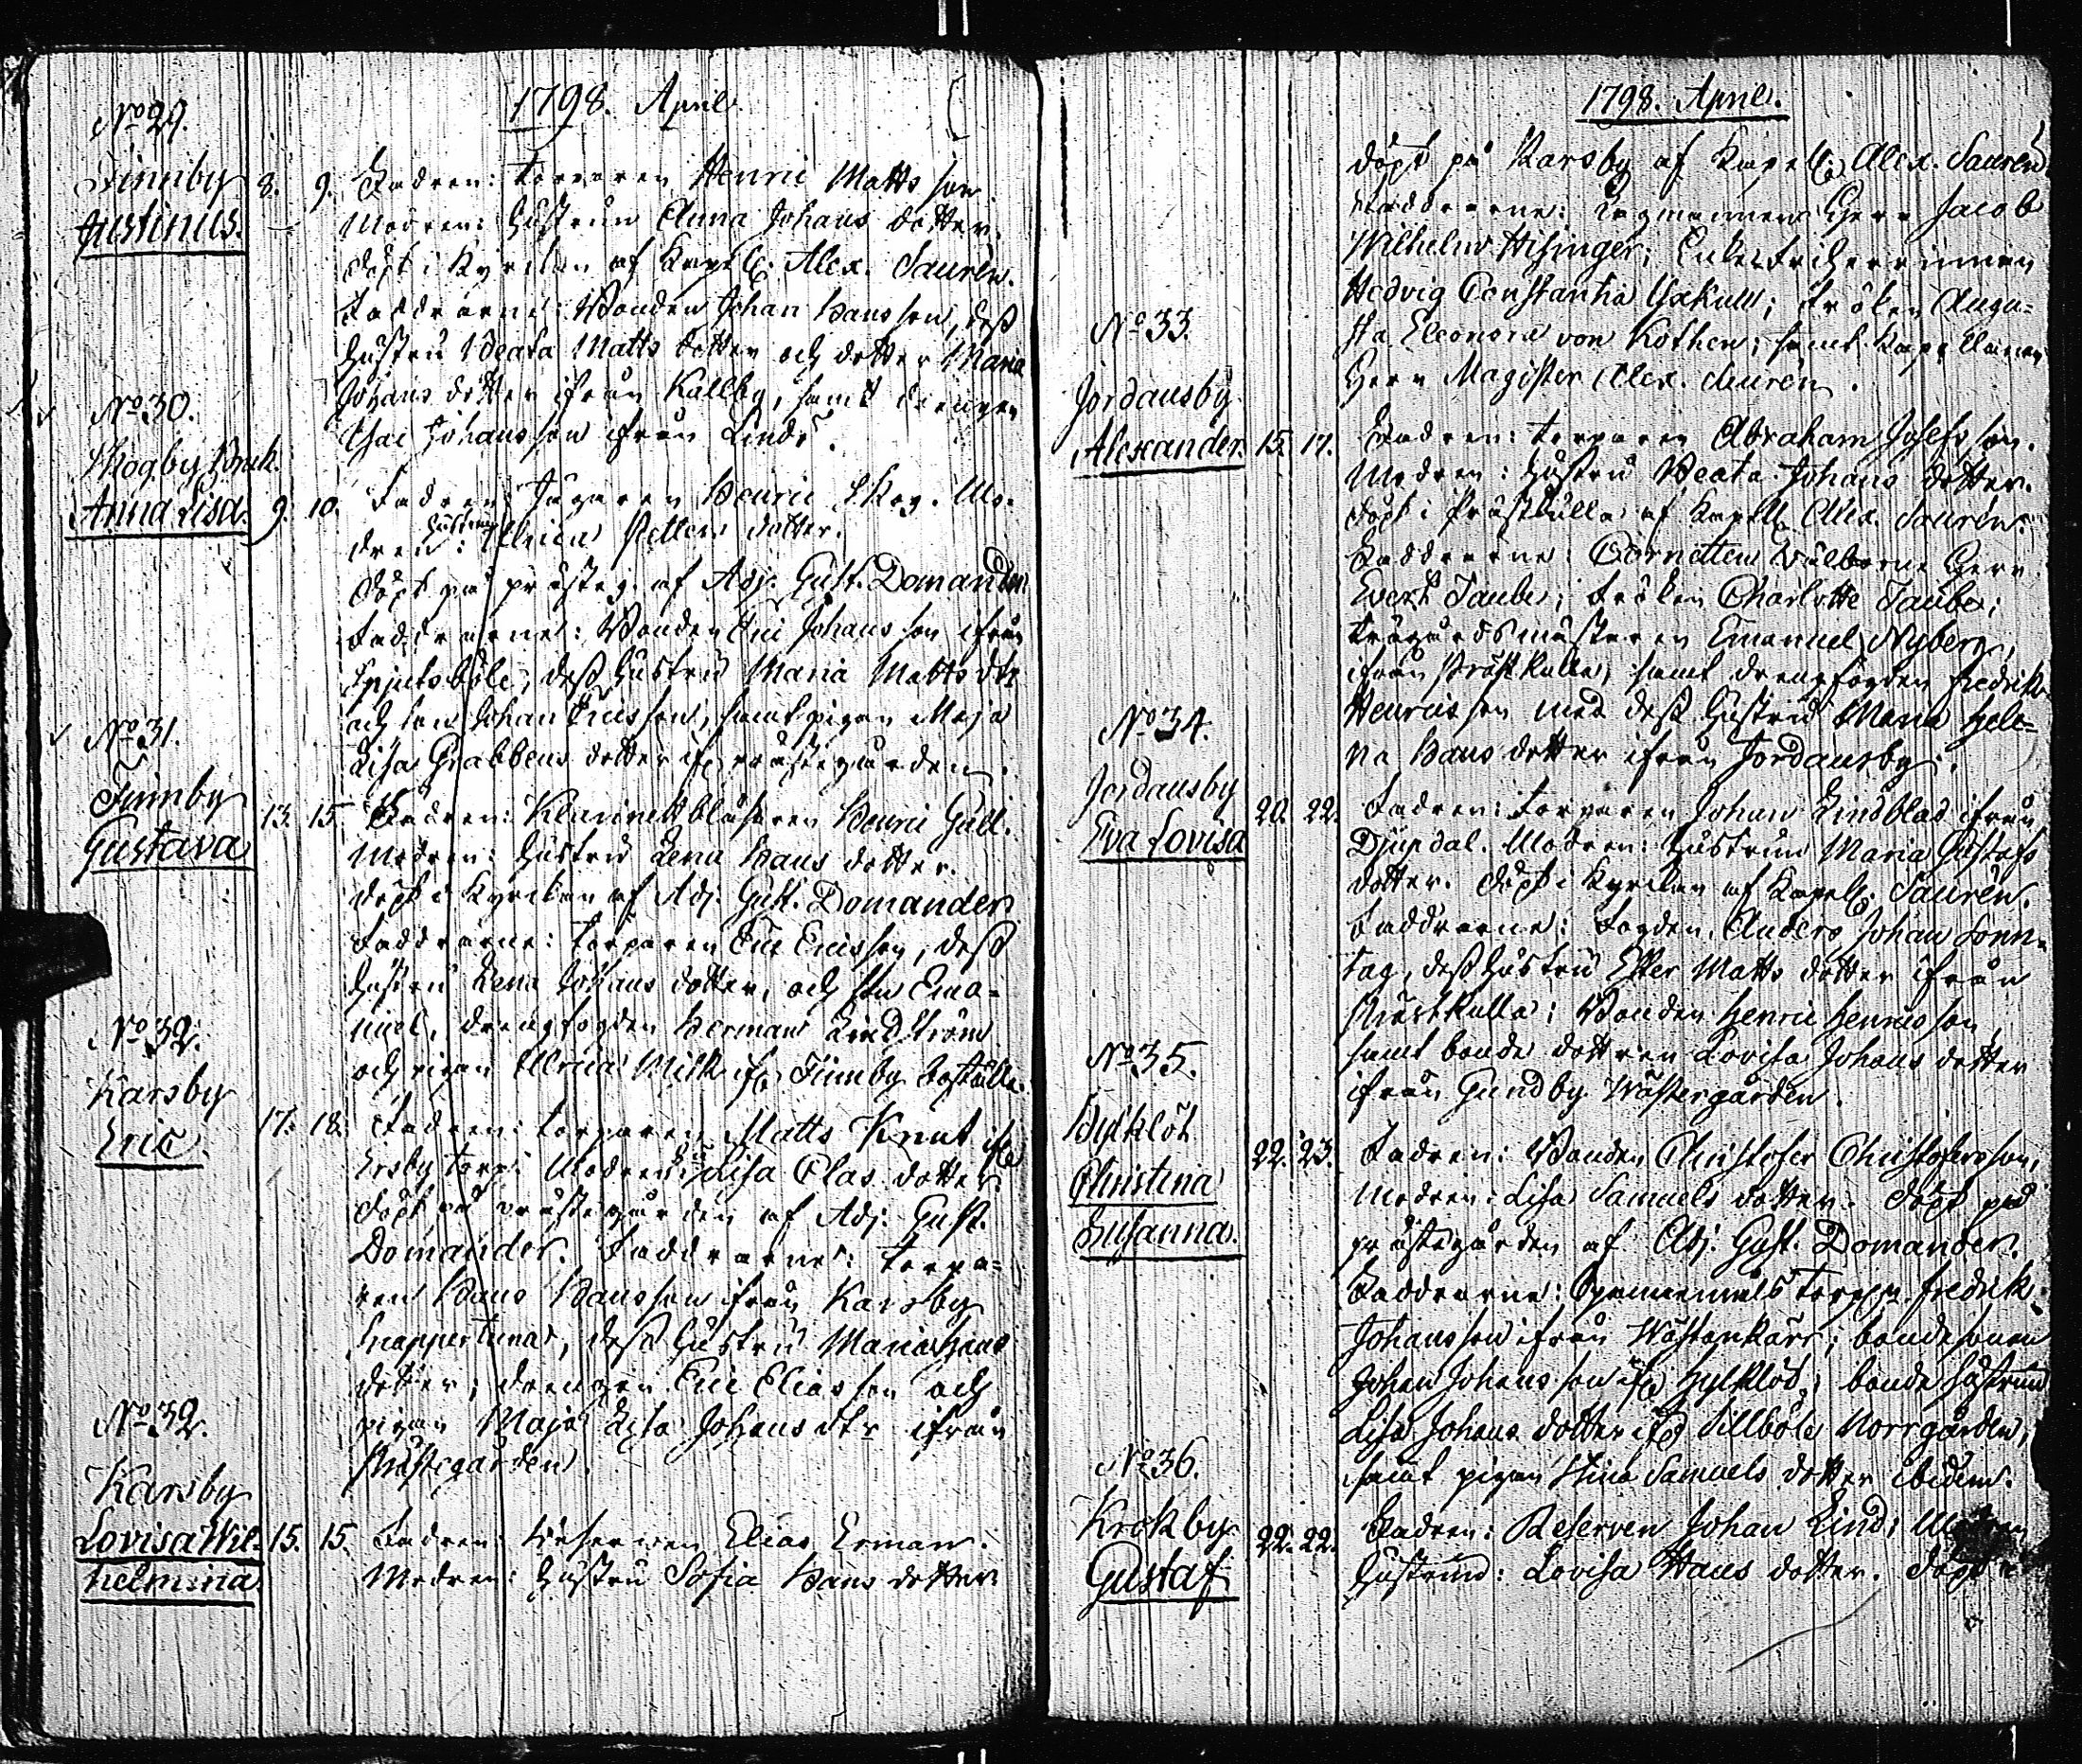 1798. April
No 29.
Finnby 8. 9. Fadren: torparen Henric Matts son
Justinus. Modren: hustrun Anna Johans dotter.
döpt i Kyrckan af Kapell: Alex. Sauren.
Faddrarne: Bonden Johan Hansson, dess
hustru Beata Matts dotter och dotter Maria
Johans dotter ifrån Kallby, samt drengen
Isac Johansson ifrån Lindö.
No 30.
Skogby bruk.
Anna Lisa. 9. 10. Fadren: Henric Skog. Mo-
dren: hustrun Ulrica Petters dotter.
döpt på prästeg. af Adj. Gust. Domander
Faddrarne: Bonden Eric Johansson ifrån
Spjutsböle, dess hustru Maria Matts dtr
och son Johan Ericsson, samt pigan Maja
Lisa Grabbens dotter ifr. prästegården.
No 31.
Finnby 13. 15. Fadren: Klarinettblåsaren Henric Gull.
Gustava Modren: hustrun Lena Hans dotter.
döpt i Kyrckan af Adj. Gust. Domander
Faddrarne: torparen Eric Ericsson, dess
hustru Lena Johans dotter, och son Ema-
nuel, drengfogden Herman Lindström
och pigan Ulrica Milk ifr. Finnby boställe.
No 32.
Karsby 17. 18. Fadren: torparen Matts Knut ifr.
Eric. Ersby torp. Modren: Lisa Clas dotter.
döpt på prästegården af Adj. Gust.
Domander. Faddrarne: torpa-
ren Hans Hansson ifrån Karsby
Snappertuna, dess hustru Maria Hans
dotter, drengen Eric Eliasson och
pigan Maja Lisa Johans dtr ifrån
Prästegården.
No 32.
Karsby
Lovisa Wil- 15. 15. Fadren: Elias Erman.
helmina Modren: hustru Sofia Hans dotter
1798. April.
döpt på Karsby af Kapell: Alex. Sauren
Faddrarne: Lagmannen Herr Jacob
Wilhelm Hisinger; Enkefriherrinnan
Hedvig Constantia Yxkull; fröken Augu-
sta Eleonora von Köthen; samt Kapellanen
Herr Magister Alex. Sauren.
No 33.
Jordansby
Alexander. 15. 17. Fadren: torparen Abraham Josefsson.
Modren: hustru Beata Johans dotter.
döpt i Prästkulla af Kapell: Alex. Sauren.
Faddrarne: Cornetten Välborne Herr
Evert Taube; fröken Charlotte Taube;
trägårdsmästaren Emanuel Nyberg,
ifrån Prästkulla, samt drengfogden Fredrik
Henricsson med dess hustru Maria Hele-
na Hans dotter ifrån Jordansby.
No 34.
Jordansby 20. 22. Fadren: torparen Johan Lindblad ifrån
Eva Lovisa Djupdal. Modren: hustrun Maria Gustafs
dotter. döpt i Kyrckan af Kapell: Sauren.
Faddrarne: Fogden Anders Johan Sonn-
tag, dess hustru Ester Matts dotter ifrån
Prästkulla; Bonden Henric Henricsson
samt bonde dottren Lovisa Johans dotter
ifrån Gundby Wästergården.
No 35.
Hylklöt 22. 23. Fadren: Bonden Christofer Christofersson,
Christina Modren: Lisa Samuels dotter. döpt på
Susanna. prästegården af Adj. Gust. Domander.
Faddrarne: torp: Fredrik
Johansson ifrån Wästankärr; bondesonen
Johan Johansson ifr. Hylklöt; bonde hustrun
Lisa Johans dotter ifr. Sillböle Norrgården,
samt pigan Stina Samuels dotter ibidem.
No 36.
Krokby 22. 22. Fadren: Reserven Johan Lind; Modren
Gustaf hustrun: Lovisa Hans dotter. döpt